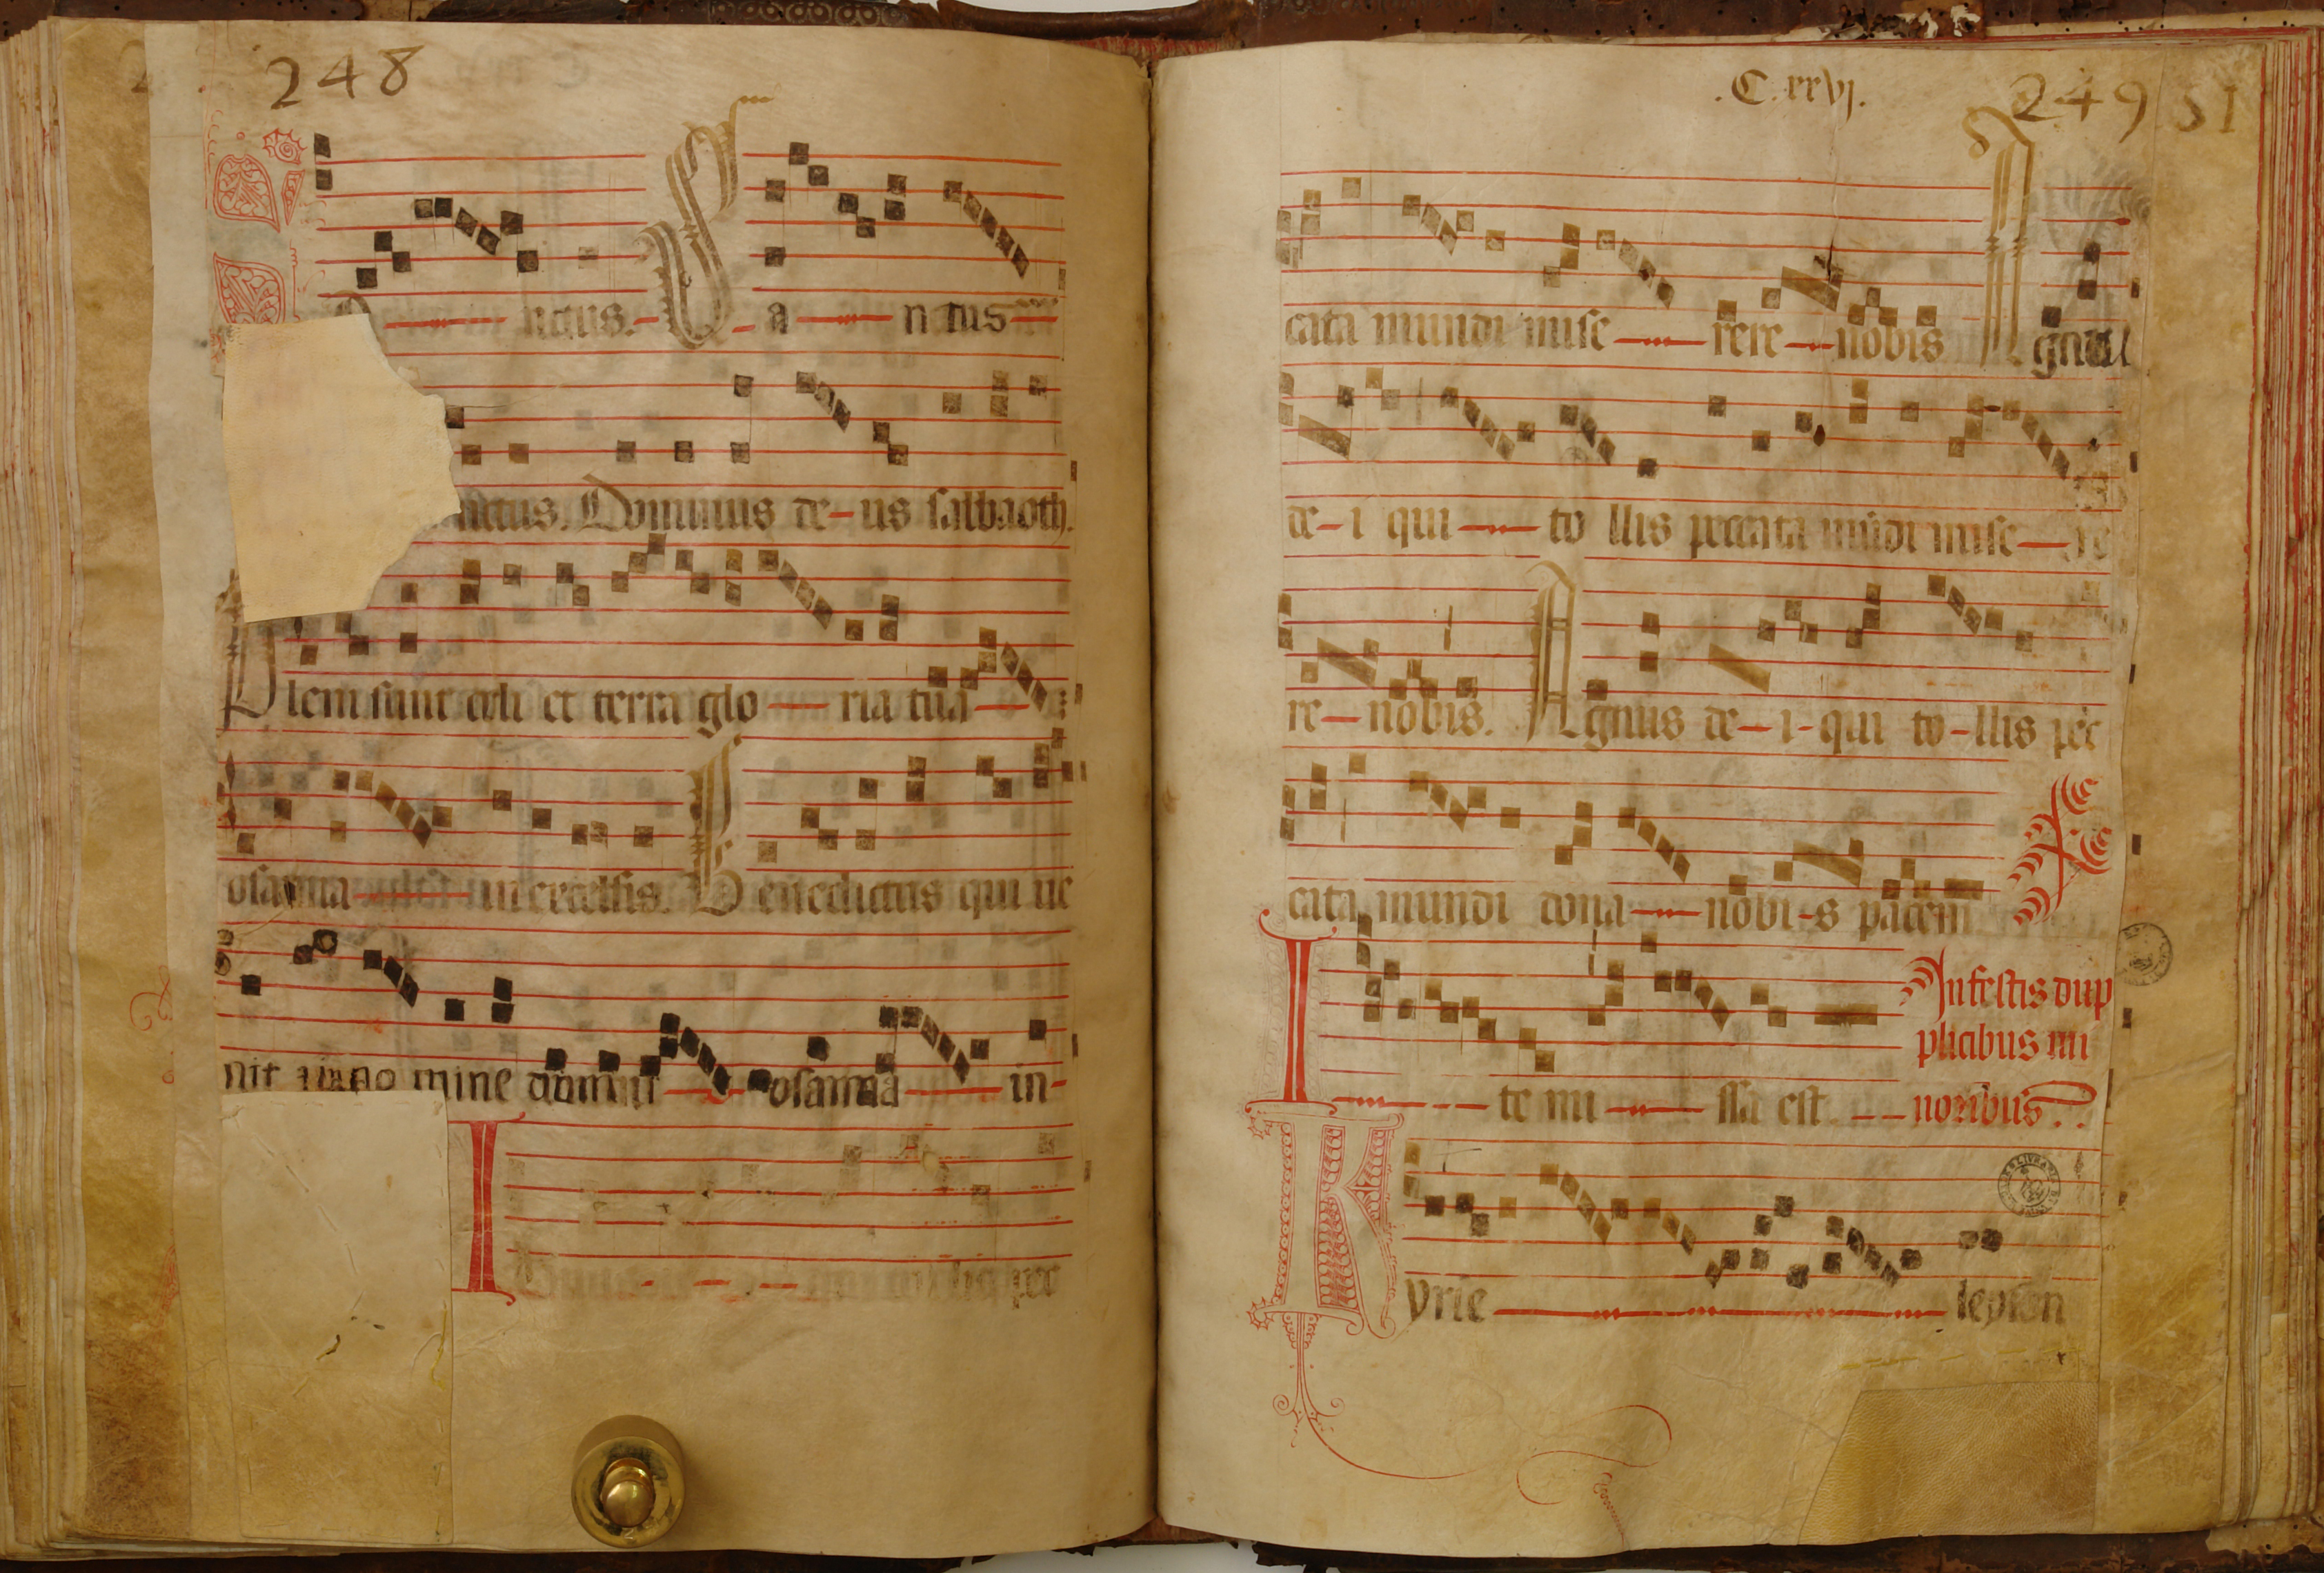 248
nctus. Sanctus
nctus. Dominus de-us sabbaoth.
Pleni sunt celi et terra glo-ria tua
osanna in excelsis. Benedictus qui ue
nit in no mine domini osanna in-
pec
.C.xxvj. 249 51
cata mundi mise-rere-nobis Agnus
de-i qui-to llis peccata mūdi mise-re
re-nobis. Agnus de-i-qui to-llis pec
cata mundi dona-nobi-s pacem
In festis dup
plicibus mi
I-te mi-ssa est. noribus.
Kyrie leyson